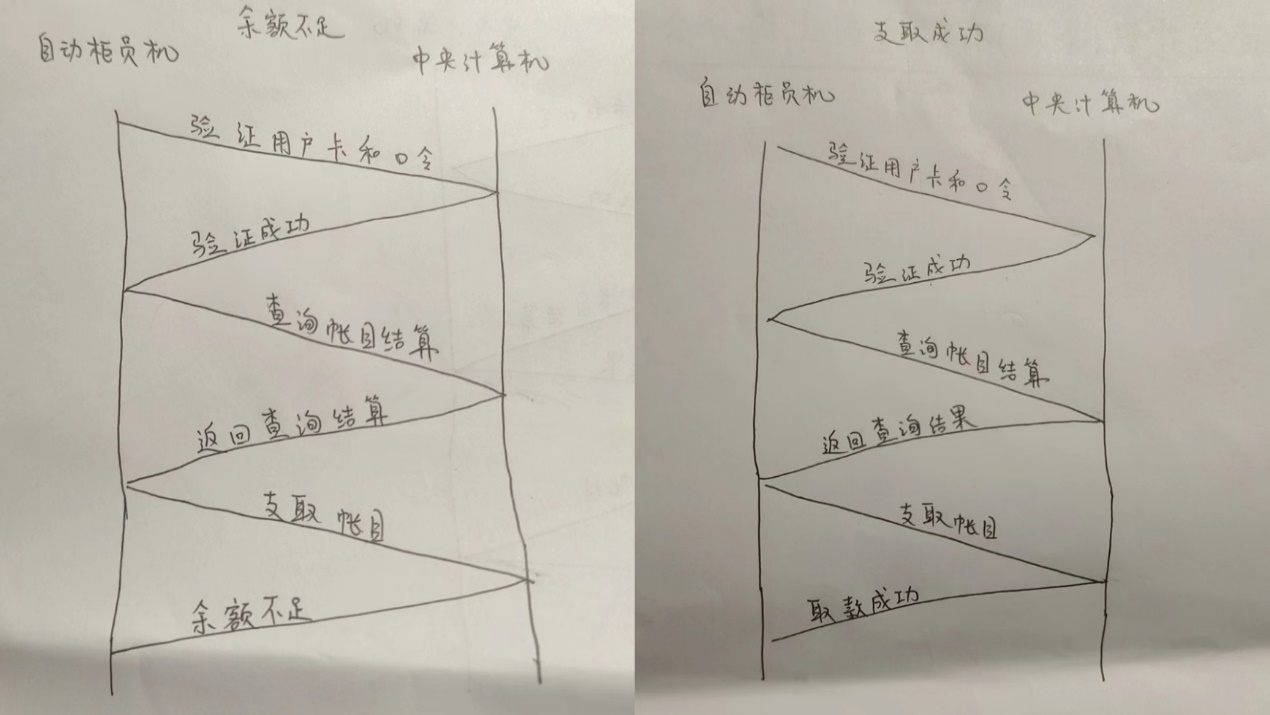 余额不足
自动柜员机
中央计算机
验证用户卡和口令
验证成功
查询帐目结算
返回查询结算
支取帐目
余额不足
支取成功
自动柜员机
中央计算机
验证用户卡和口令
验证成功
查询帐目结算
返回查询结果
支取帐目
取款成功